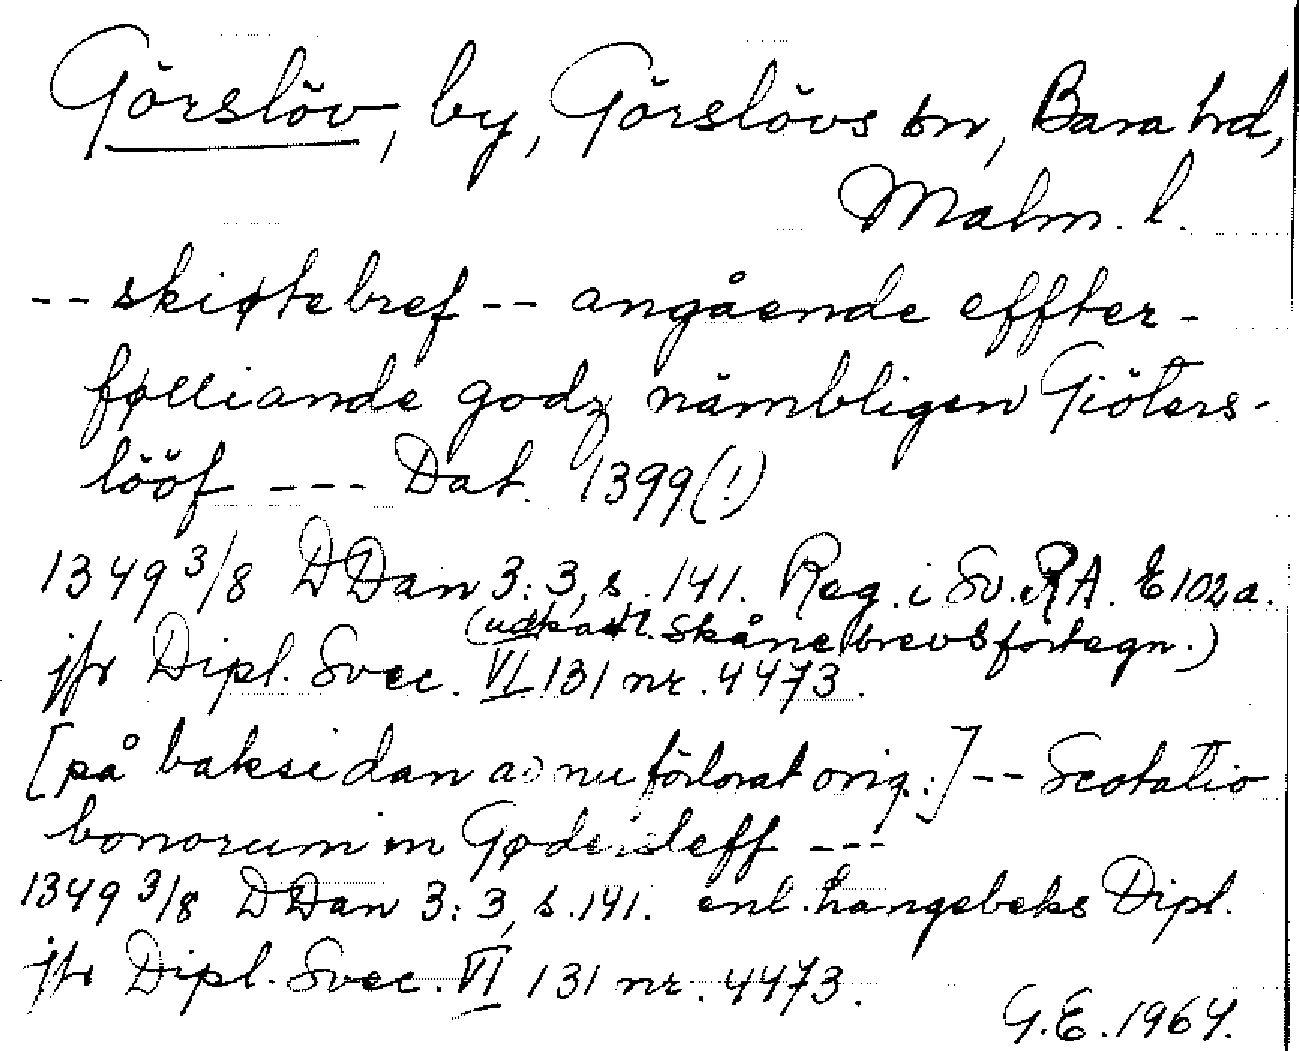 Görslöv, by, Görslövs sn, Bara hrd,
Malm. l.
-- skiøtebref -- angående effter-
følliande godz nämbligen Giöters-
lööf --- Dat. 1399(!)
1349 3/8 DDan 3: 3, s. 141. Reg. i Sv. RA. E 102a.
(udkast t. Skånebrevsfortegn.)
jfr Dipl. Svec. VI 131 nr. 4473.
[på baksidan av nu förlorat orig.:] -- Scotatio
bonorum in Gødersleff ---
1349 3/8 DDan 3: 3, s. 141. enl. Langebeks Dipl.
jfr Dipl. Svec. VI 131 nr. 4473.
G.E. 1964.